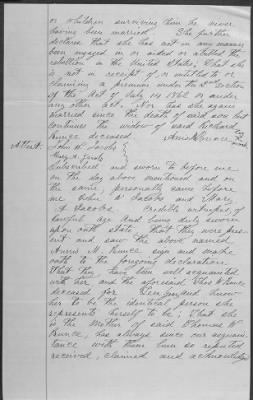 or children surviving him he never
having been married She further
declares that she has not in any manner
been engaged in or aided or abetted the
rebellion in the United States; That she
is not in receipt of, or entitled to or
claiming a pension under the 2nd Section
of the Act of July 14 1862 or under
any other act. Nor has she again
married since the death of said son but
continues the widow of said Richard
Runce deceased
Attest:
John W. Jacobs
Mary A. Jacobs
Subscribed and sworn to before me
on the day above mentioned and on
the same, personally came before
me John W Jacobs and Mary
A Jacobs credible witnesses of
lawful age and being duly sworn
upon oath state that they were pres-
ent and saw the above named
Annie M. Runce sign and make
oath to the foregoing declaration.
That they have been well acquainted
with her and the aforesaid Thos W Runce
deceased for and know
her to be the identical person she
represents herself to be; That she
is the Mother of said Thomas W
Runce, has always since our acquain-
tance with them been so reputed
received, claimed and acknowledg